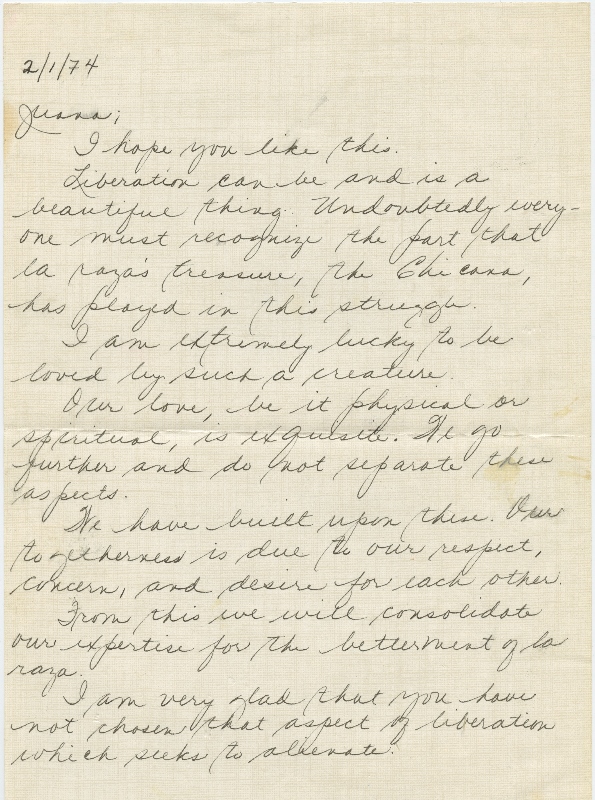 2/1/74
Juana;
I hope you like this.
Liberation can be and is a
beautiful thing. Undoubtedly every-
one must recognize the part that
la raza's treasure, the Chicana,
has played in this struggle.
I am extremely lucky to be
loved by such a creature.
Our love, be it physical or
spiritual, is exquisite. We go
further and do not separate these
aspects.
We have built upon these. Our
togetherness is due to our respect,
concern, and desire for each other.
From this we will consolidate
our expertise for the betterment of la
raza.
I am very glad that you have
not chosen that aspect of liberation
which seeks to alienate.